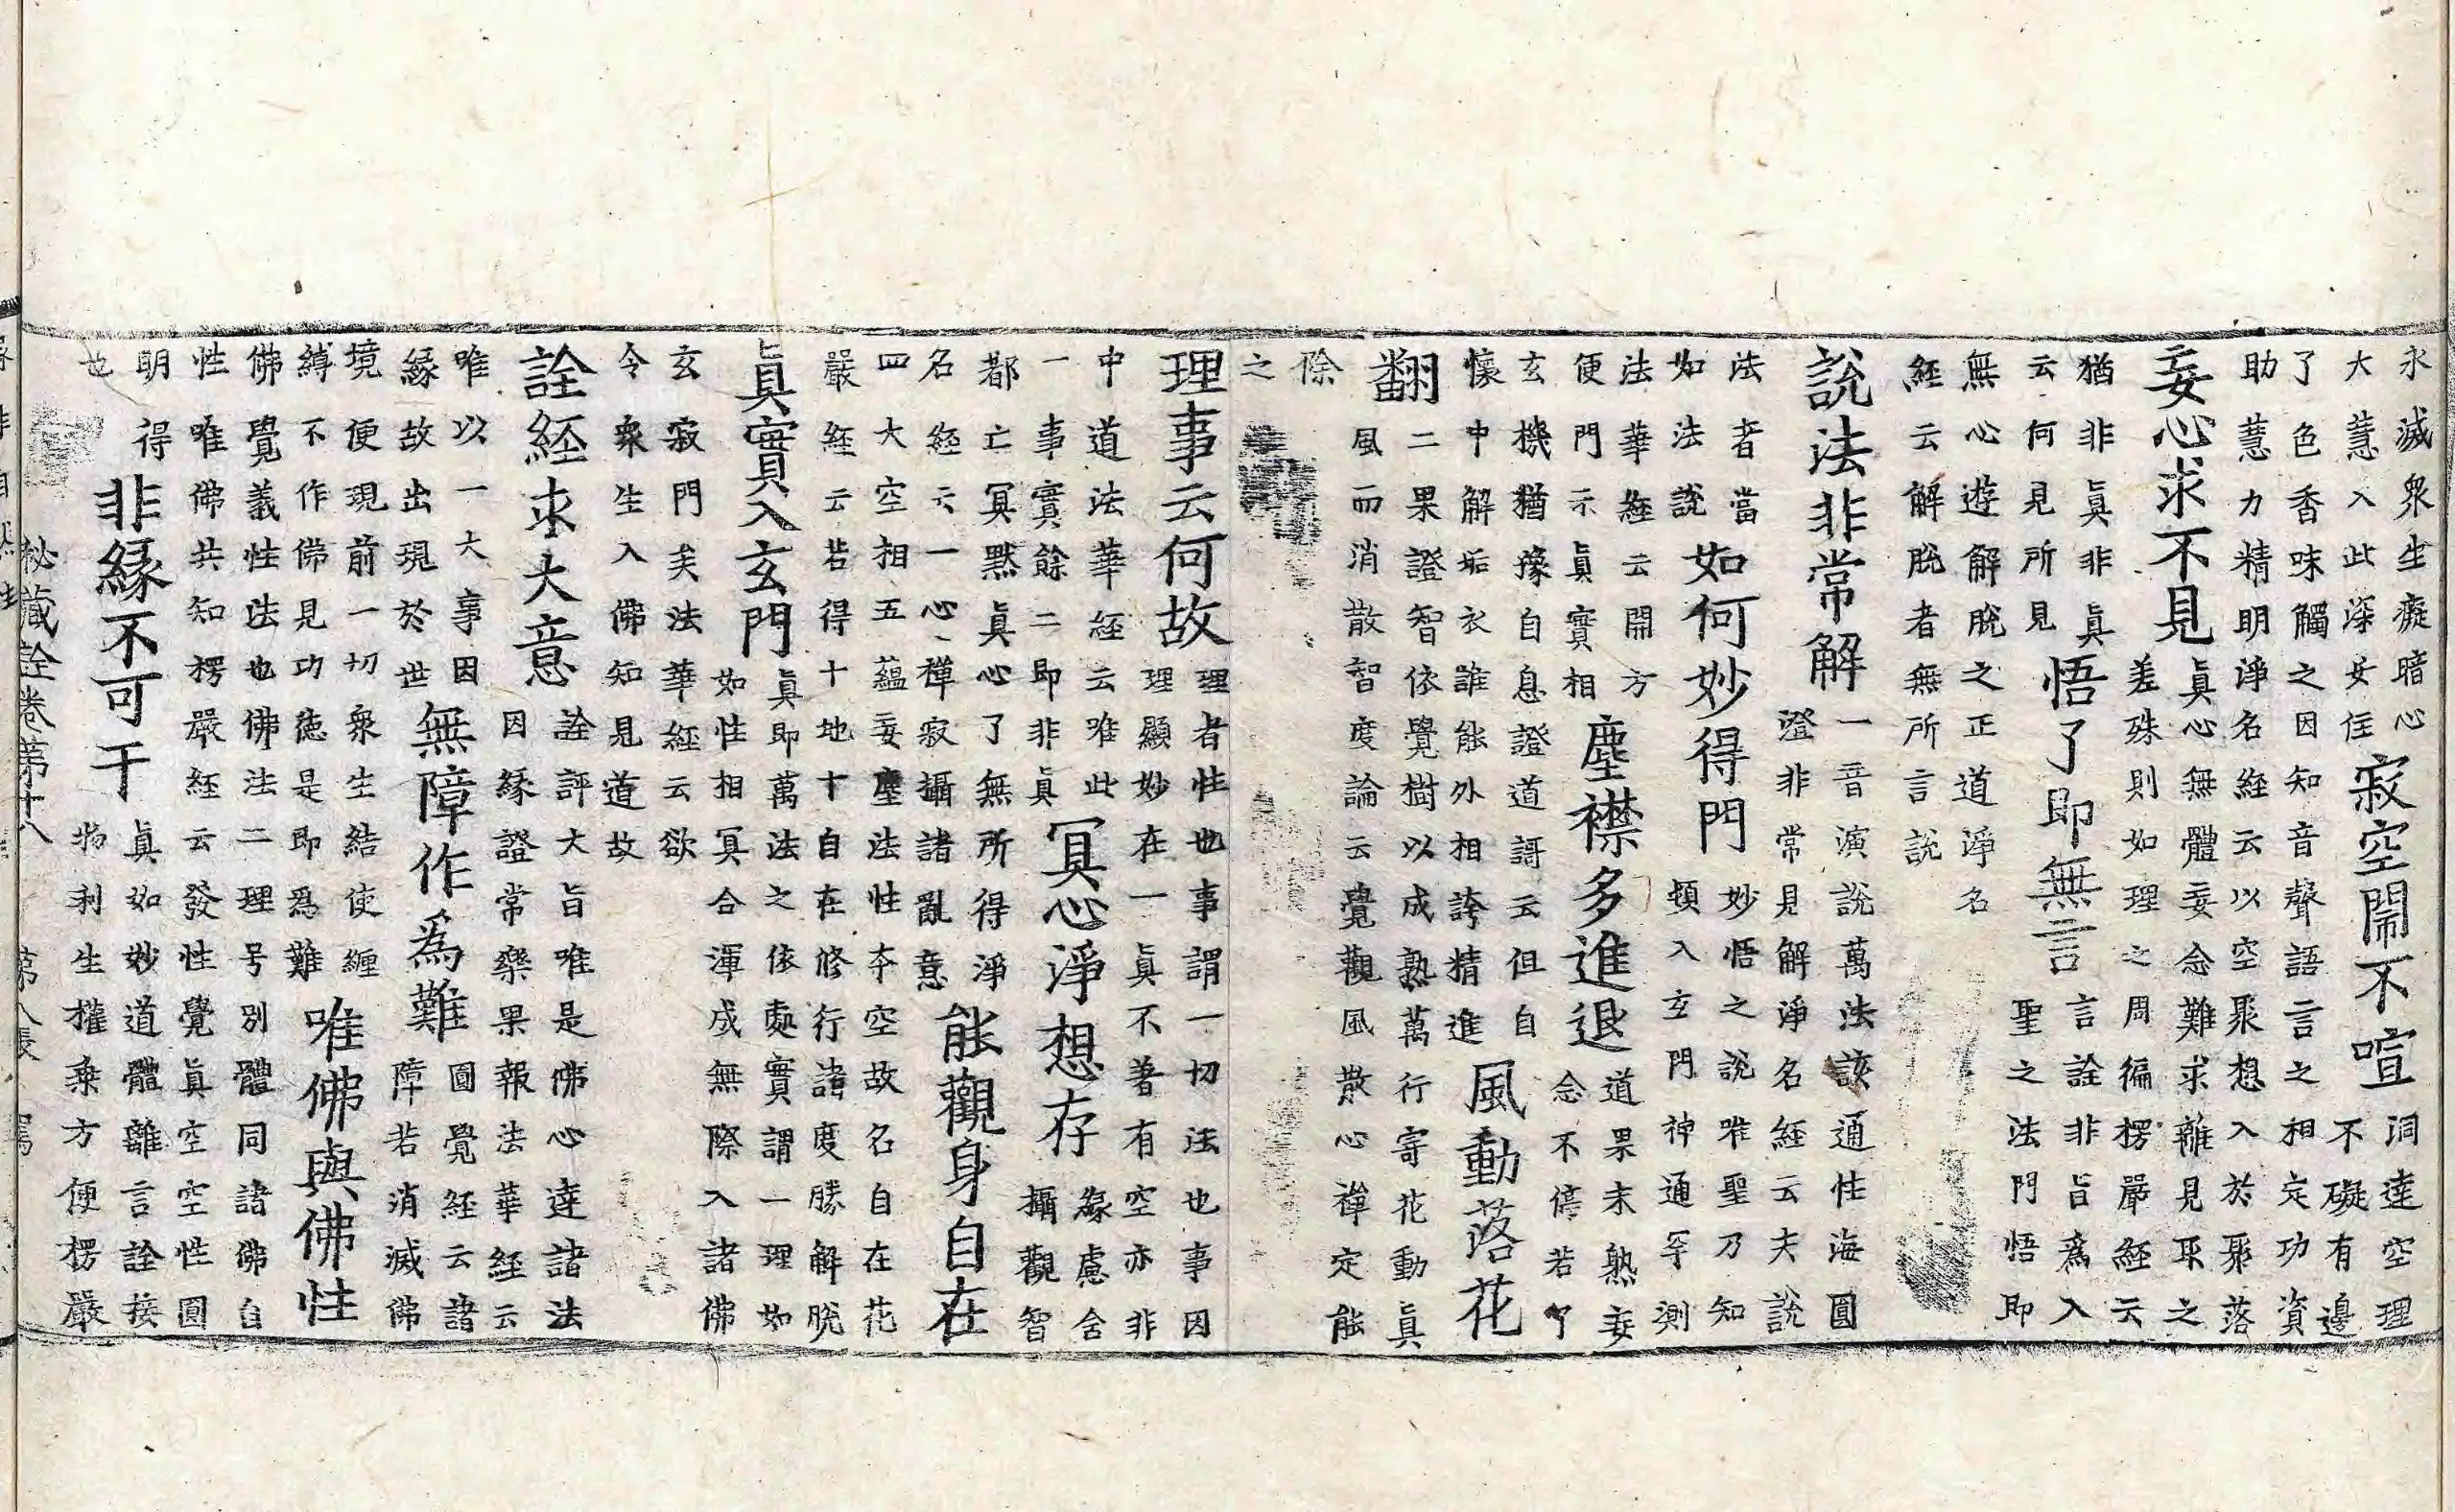 永滅衆生癡暗心
大慧入此深安住
寂空閙不喧
洞達空理
不礙有邊
了色香味觸之因知音聲語言之相定功資
助慧力精明淨名經云以空聚想入於聚落
妄心求不見
眞心無體妄念難求離見取之
差殊則如理之周徧楞嚴經云
猶非眞非眞
云何見所見
悟了即無言
言詮非旨爲入
聖之法門悟即
無心遊解脫之正道淨名
經云解脫者無所言說
說法非常解
一音演說萬法該通性海圓
證非常見解淨名經云夫說
法者當
如法說
如何妙得門
妙悟之說唯聖乃知
頓入玄門神通罕測
法華經云開方
便門示眞實相
塵襟多進退
道果未熟妄
念不停若了
玄機猶豫自息證道謌云但自
懷中解垢衣誰能外相誇精進
風動落花
翻
二果證智依覺樹以成熟萬行寄花動眞
風而消散智度論云覺觀風散心禪定能
除
之
理事云何故
理者性也事謂一切法也事因
理顯妙在一眞不著有空亦非
中道法華經云唯此
一事實餘二即非眞
冥心淨想存
緣慮舍
攝觀智
都亡冥黙眞心了無所得淨
名經云一心禪寂攝諸亂意
能觀身自在
四大空相五蘊妄塵法性夲空故名自在花
嚴經云若得十地十自在修行諸度勝解脫
眞實入玄門
眞即萬法之依處實謂一理如
如性相冥合渾成無際入諸佛
玄寂門矣法華經云欲
令衆生入佛知見道故
詮經求大意
詮評大旨唯是佛心達諸法
因緣證常樂果報法華經云
唯以一大事因
緣故出現於世
無障作爲難
圓覺經云諸
障若消滅佛
境便現前一切衆生結使纏
縛不作佛見功德是即爲難
唯佛與佛性
佛覺義性法也佛法二理号別體同諸佛自
性唯佛共知楞嚴經云發性覺眞空空性圓
明得
也
非緣不可干
眞如妙道體離言詮接
物利生權乘方便楞嚴
秘藏詮卷第十八 第八張